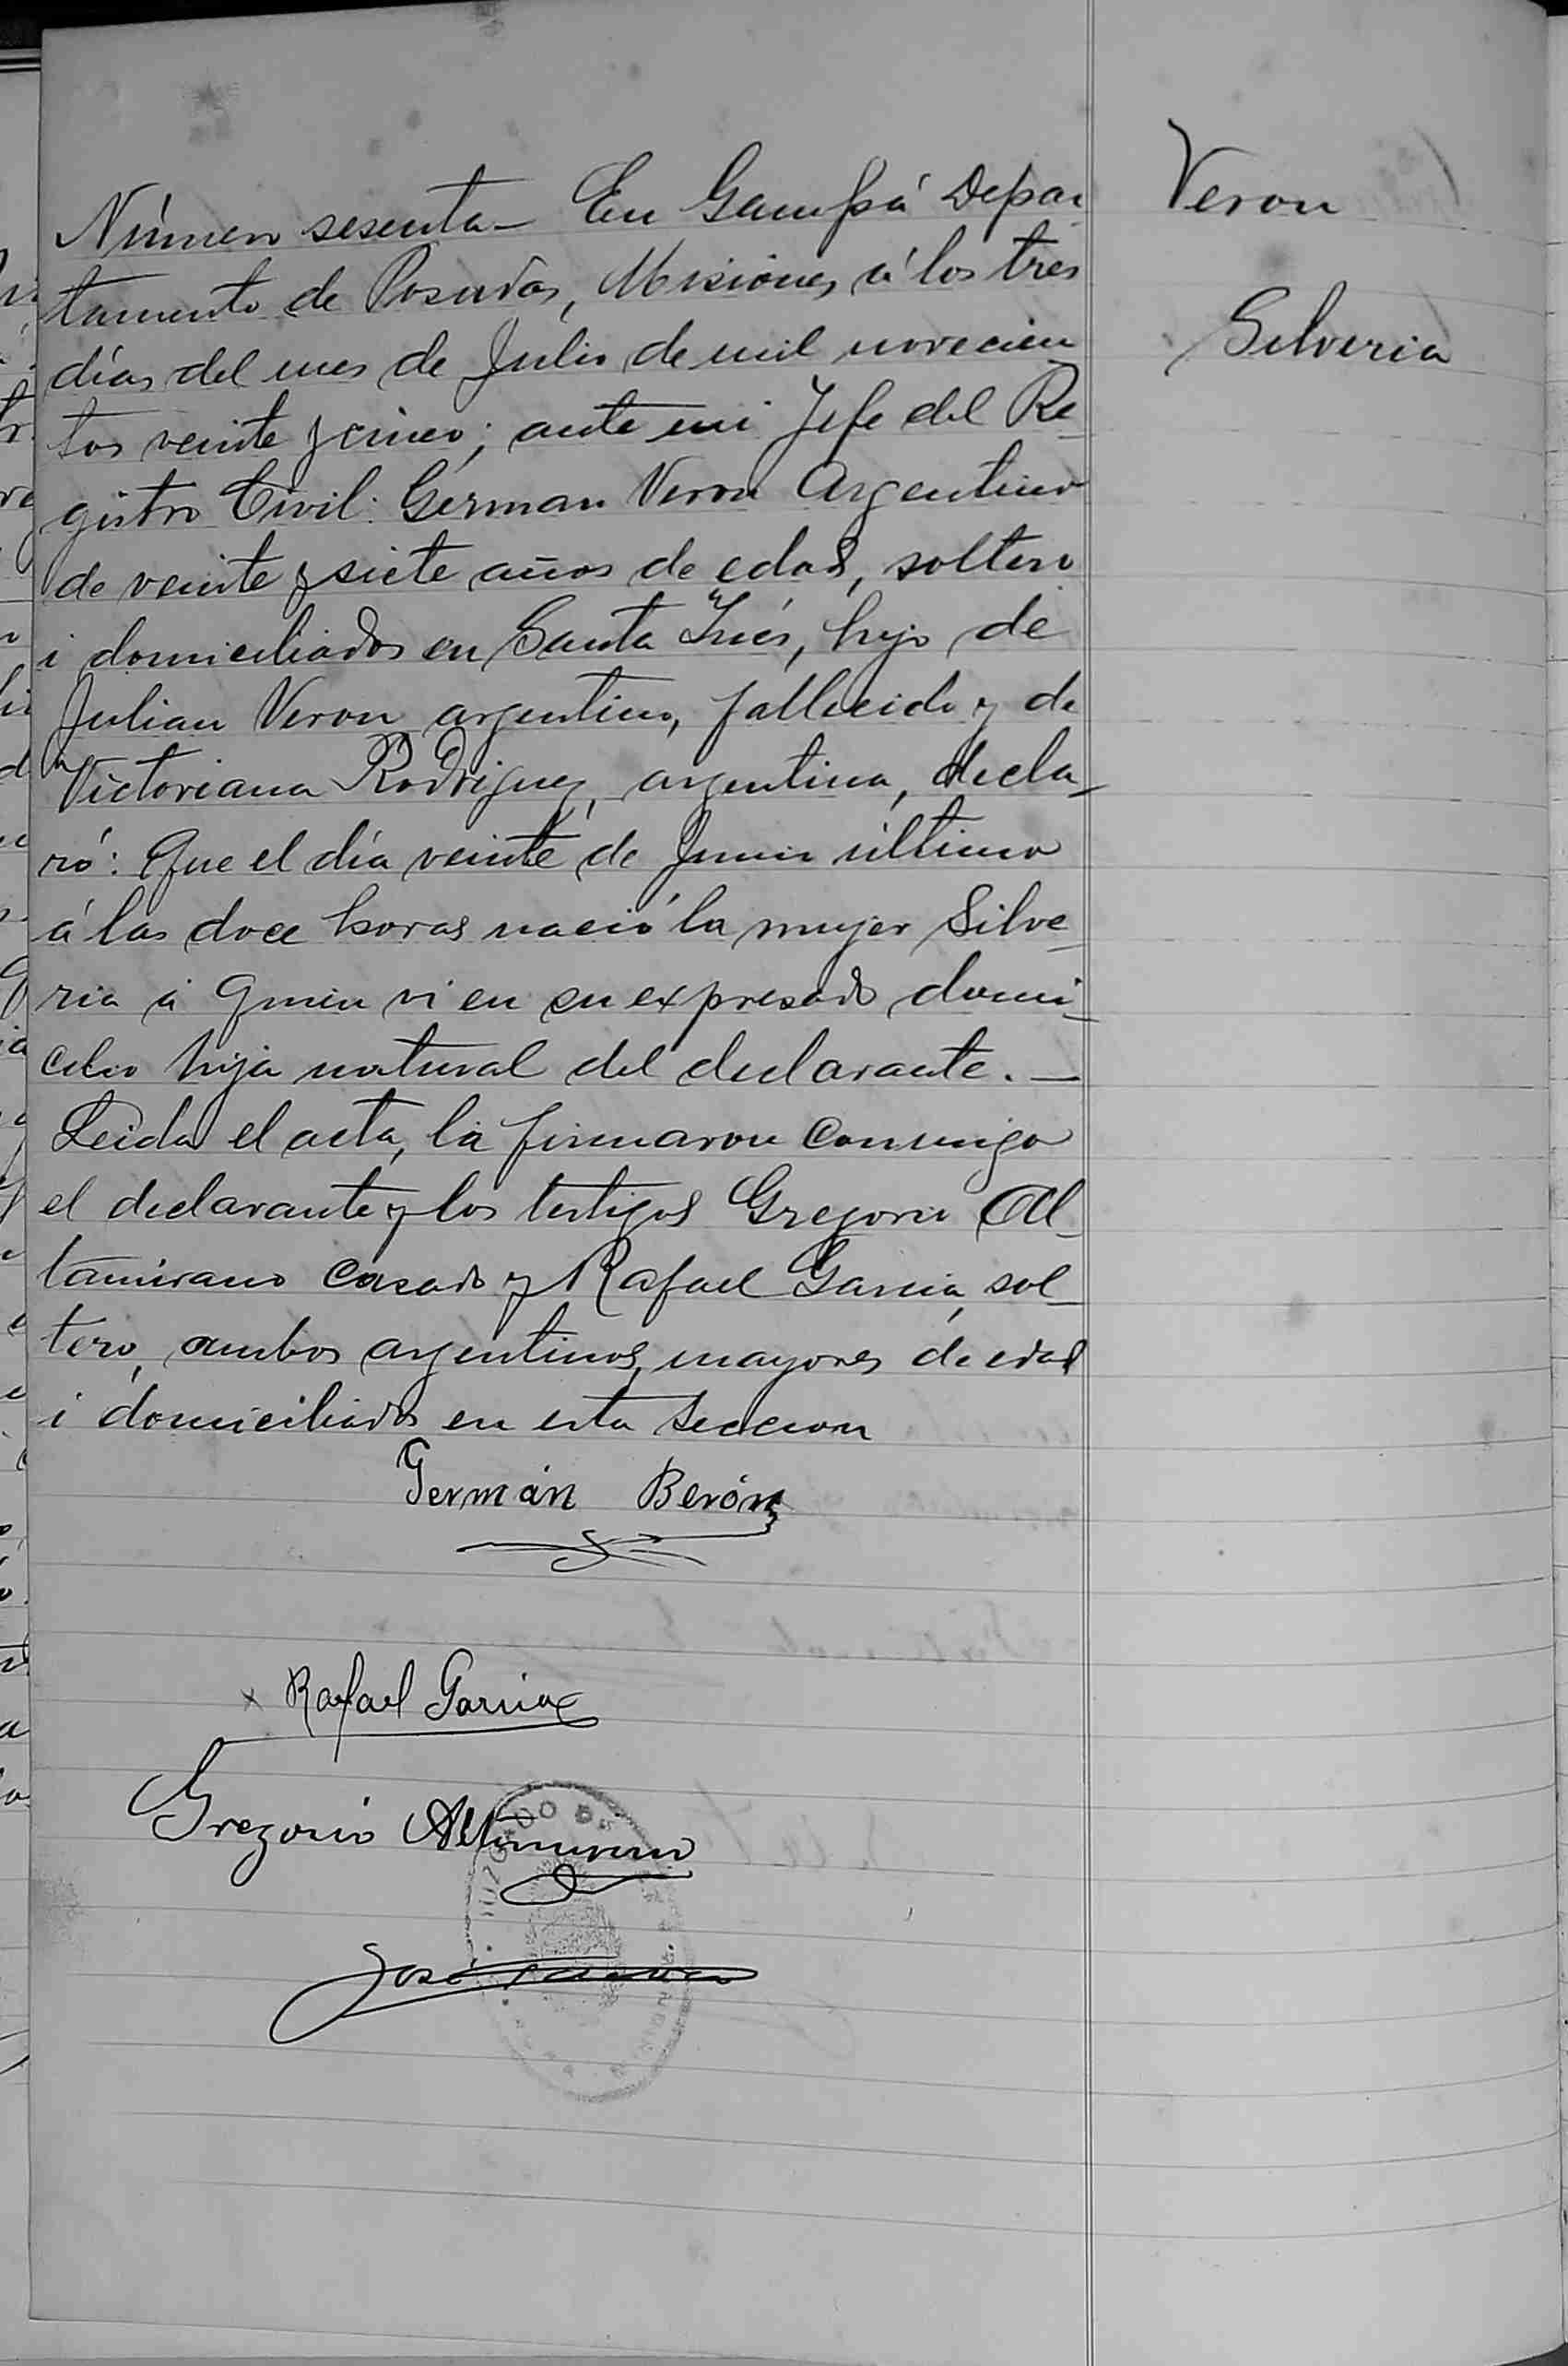 Veron
Silveria
Número sesenta— En Garupá Depar
tamento de Posadas, Misiones á los tres
días del mes de Julio de mil novecien
tos veinte y cinco; ante mi Jefe del Re
gistro Civil: German Veron Argentino
de veinte y siete años de edad, soltero
i domiciliados en Santa Inés, hijo de
Julian Veron argentino, fallecido y de
Victoriana Rodriguez, argentina, decla-
ró: Que el día veinte de Junio último
á las doce horas nació la mujer Silve
ria á quien vi en su expresado domi-
cilio hija natural del declarante. —
Leida el acta, la firmaron conmigo
el declarante y los testigos Gregorio Al-
tamirano casado y Rafael Garcia, sol-
tero, ambos argentinos, mayores de edad
i domiciliados en esta seccion
Germán Berón
x Rafael Garcia
Gregorio Altamirano
José